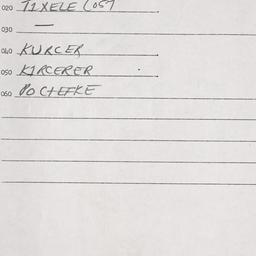 020 TIXELE LOST
030 —
040 KURCER
050 KIRCERER
060 POCHEFKE